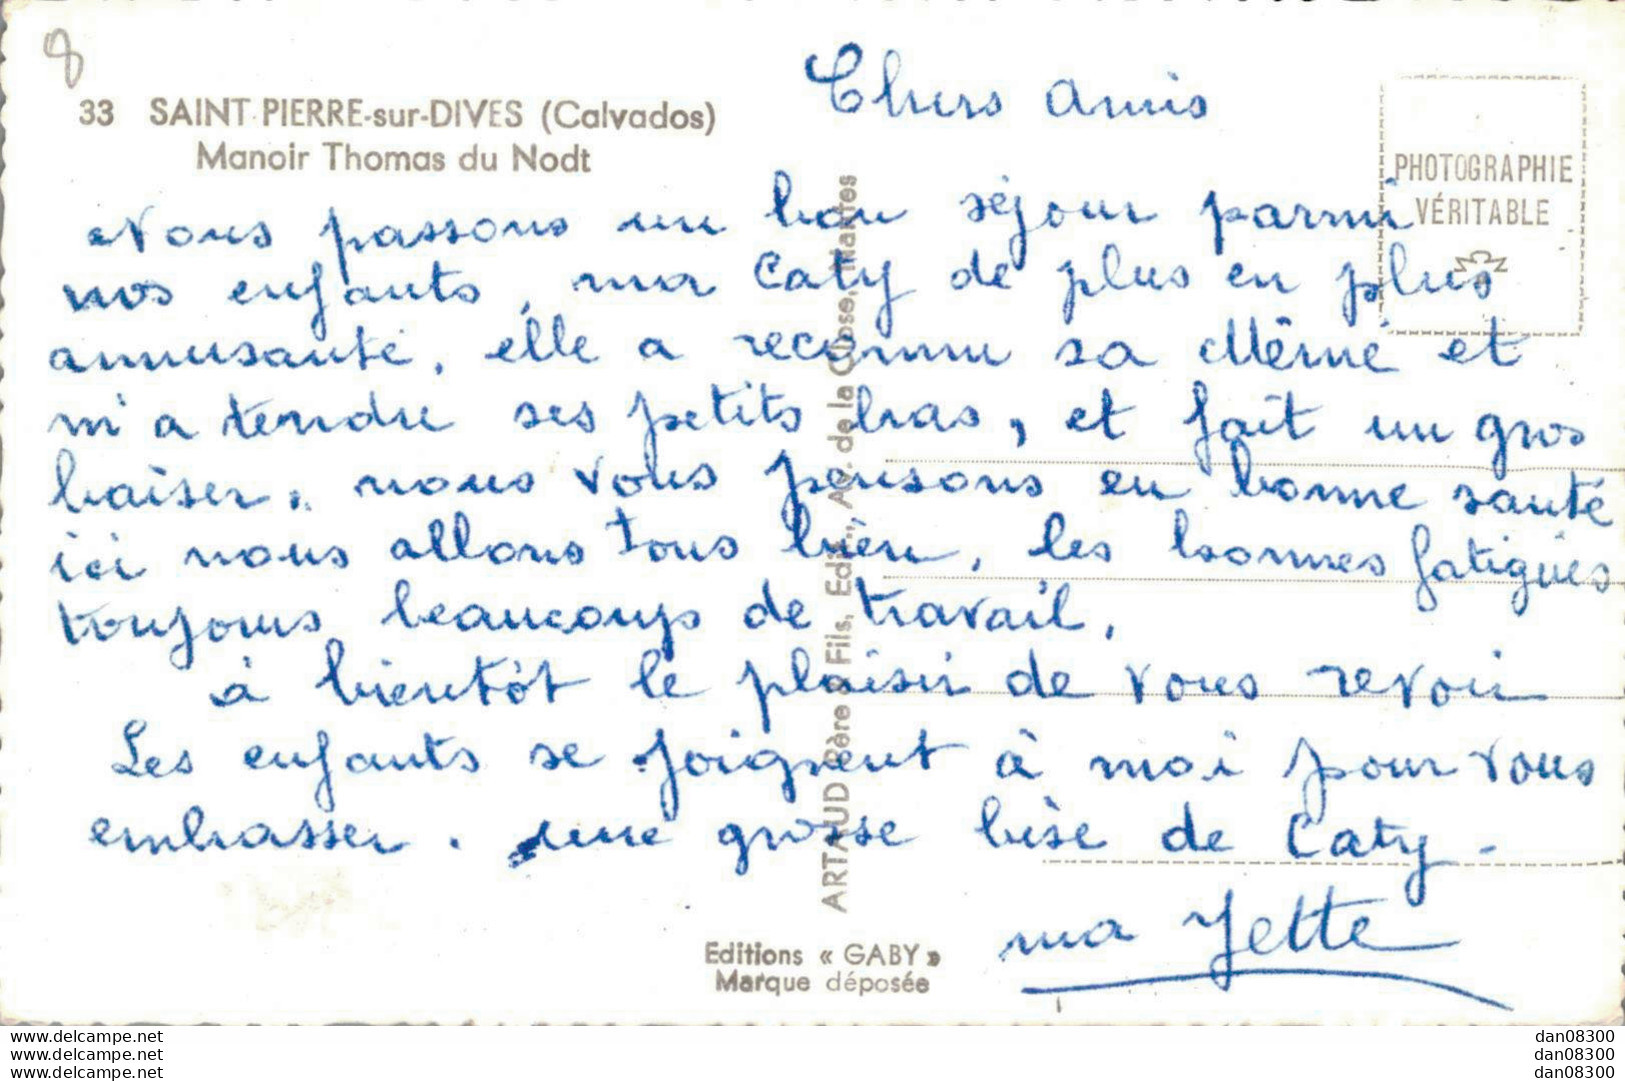 8
33 SAINT-PIERRE-sur-DIVES (Calvados)
Manoir Thomas du Nodt
PHOTOGRAPHIE
VÉRITABLE
Chers Amis
Nous passons un bon séjour parmi
nos enfants, ma Caty de plus en plus
amusante, elle a reconnu sa Mémé et
m'a tendu ses petits bras, et fait un gros
baiser. nous vous pensons en bonne santé
ici nous allons tous bien, les hommes fatigués
toujours beaucoup de travail.
à bientôt le plaisir de vous revoir
Les enfants se joignent à moi pour vous
embrasser. une grosse bise de Caty -
ARTAUD Père & Fils, Edit., Av. de la Close, Nantes
Editions « GABY »
Marque déposée
www.delcampe.net
www.delcampe.net
www.delcampe.net
dan08300
dan08300
dan08300